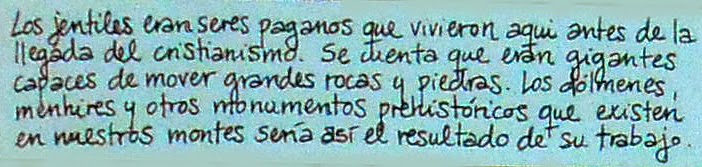 Los jentiles eran seres paganos que vivieron aqui antes de la
llegada del cristianismo. Se cuenta que eran gigantes
capaces de mover grandes rocas y piedras. Los dólmenes,
menhires y otros monumentos prehistóricos que existen
en nuestros montes sería así el resultado de su trabajo.